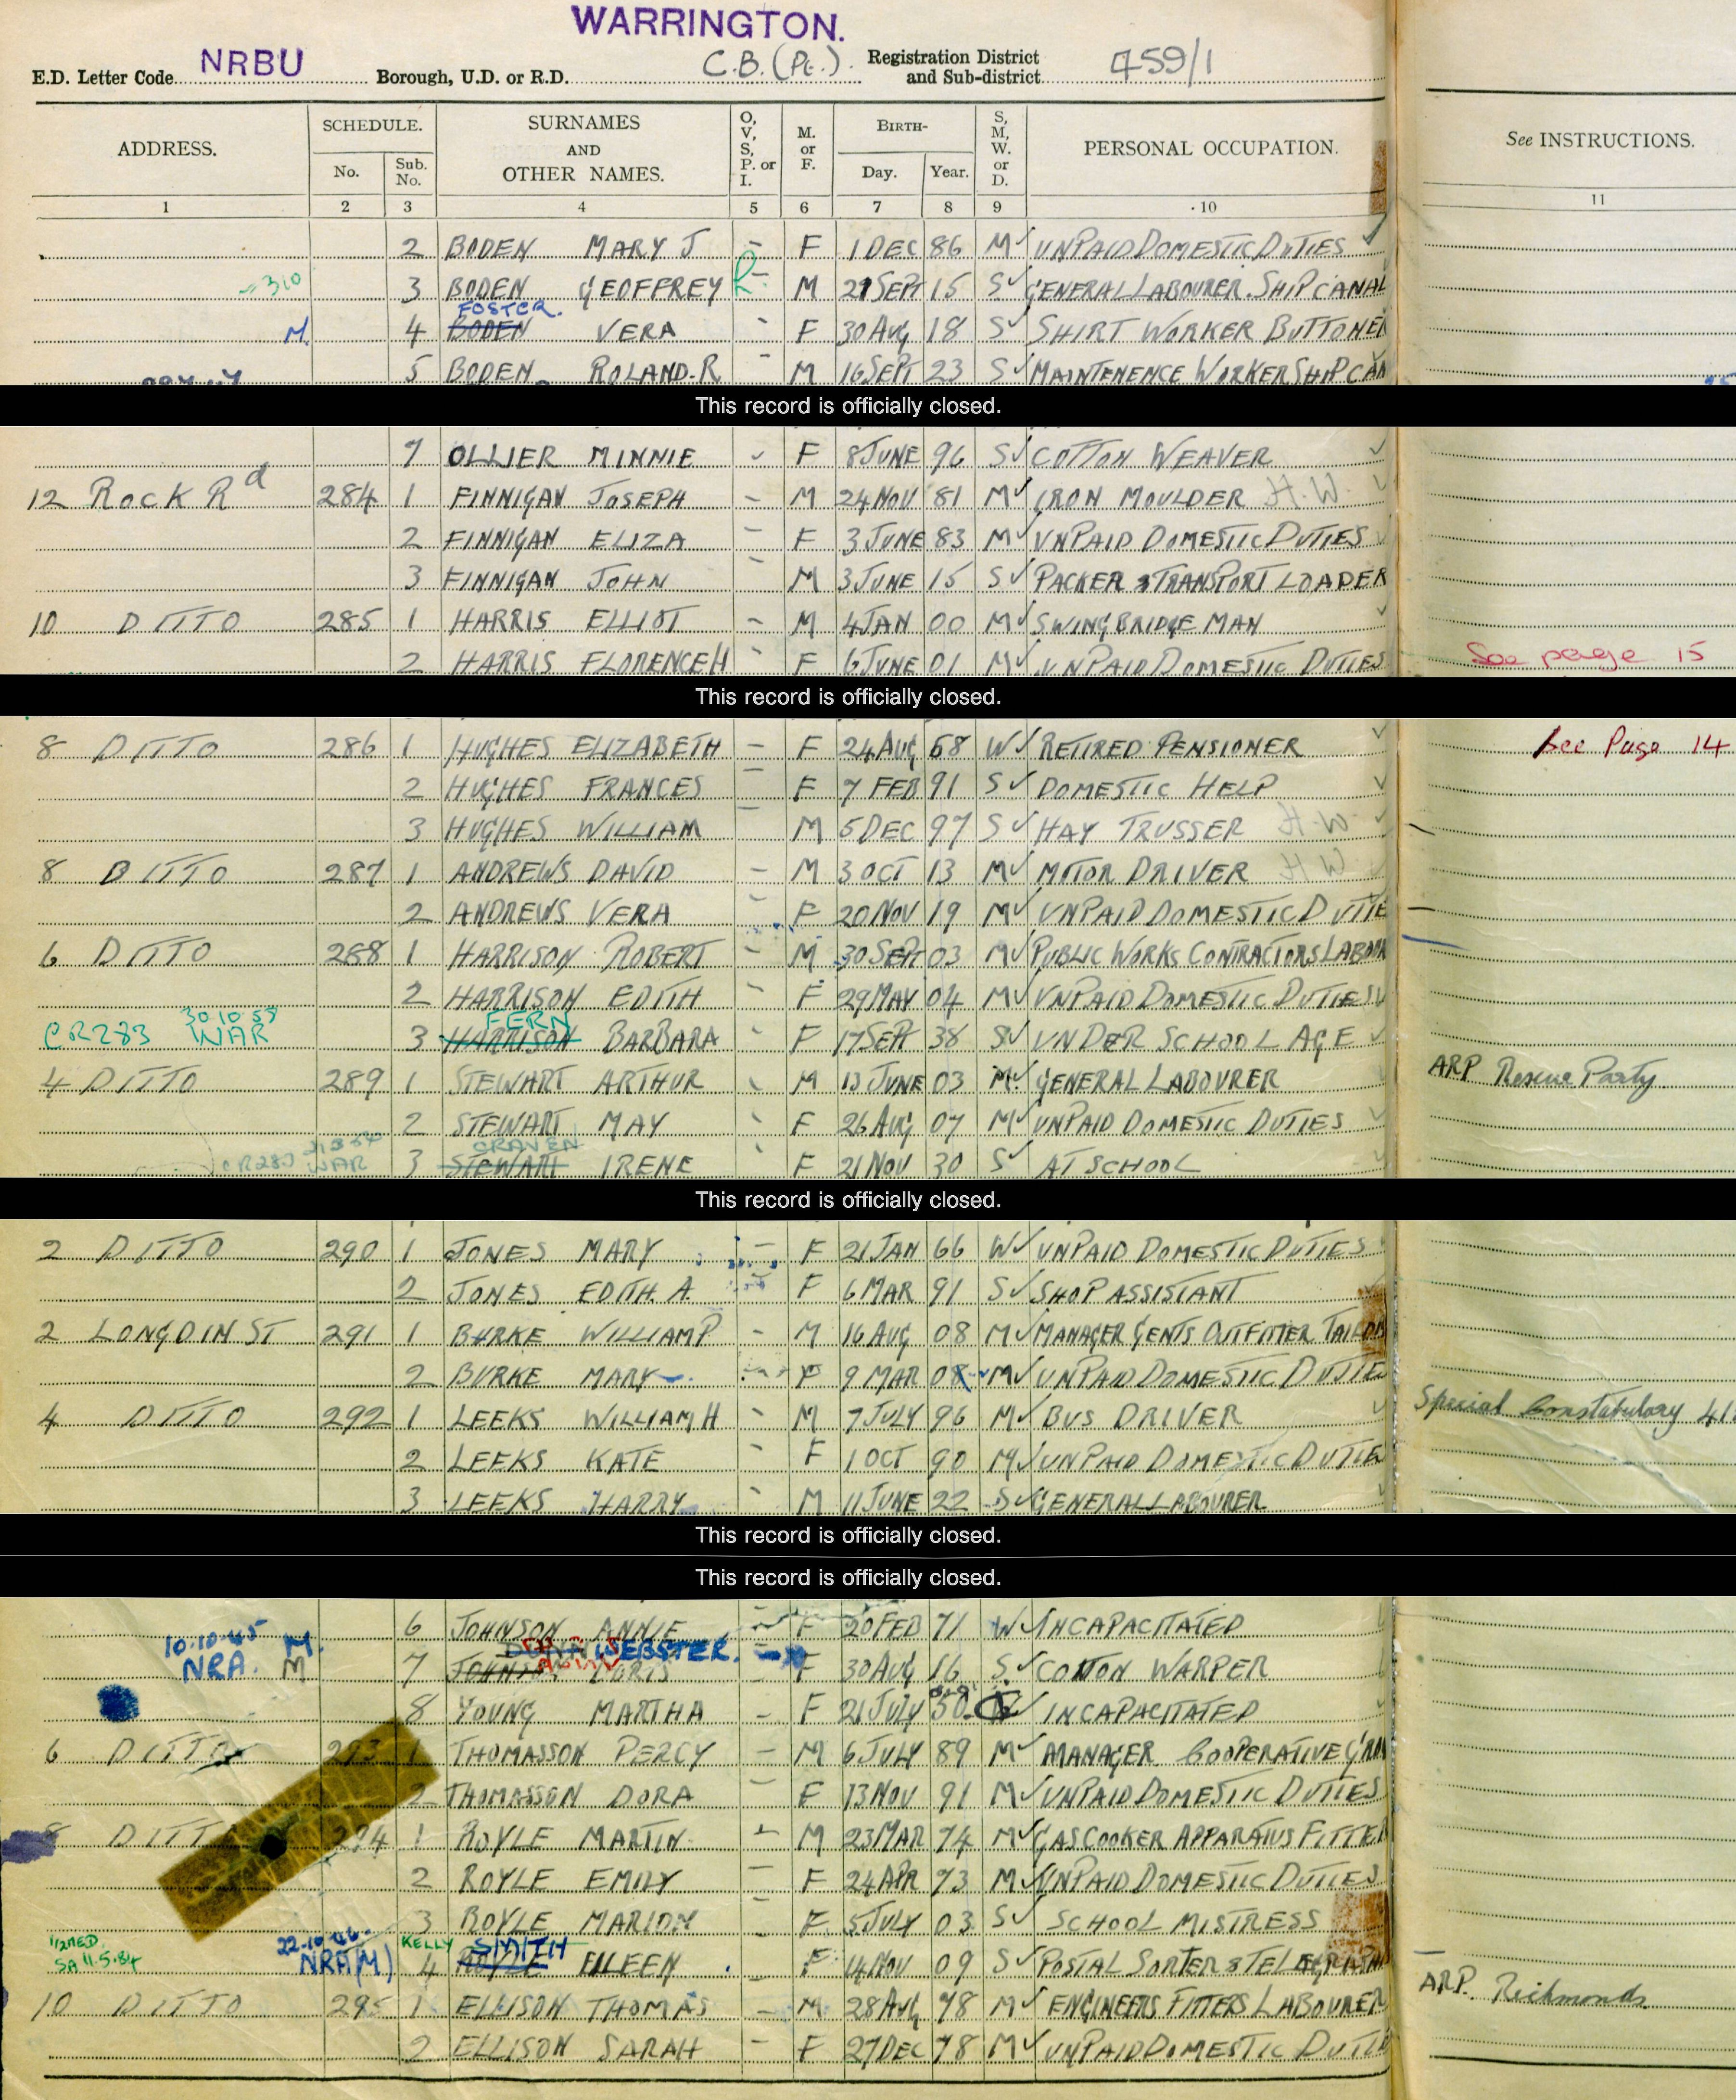 WARRINGTON.
E.D. Letter Code NRBU Borough, U.D. or R.D. C.B. (Pt.) Registration District and Sub-district 459/1
ADDRESS. SCHEDULE. No. Sub. No. SURNAMES AND OTHER NAMES. O, V, S, P. or I. M. or F. BIRTH- Day. Year. S, M, W. or D. PERSONAL OCCUPATION. See INSTRUCTIONS.
1 2 3 4 5 6 7 8 9 10 11
2 BODEN MARY J - F 1 DEC 86 M UNPAID DOMESTIC DUTIES
310 3 BODEN GEOFFREY - M 21 SEPT 15 S GENERAL LABOURER. SHIP CANAL
FOSTER.
M. 4 BODEN VERA - F 30 AUG 18 S SHIRT WORKER BUTTONE
5 BODEN ROLAND.R - M 16 SEPT 23 S MAINTENENCE WORKER SHIP CAN
This record is officially closed.
7 OLLIER MINNIE F 8 JUNE 96 S COTTON WEAVER
12 ROCK Rd 284 1 FINNIGAN JOSEPH - M 24 NOV 81 M IRON MOULDER H.W.
2 FINNIGAN ELIZA - F 3 JUNE 83 M UNPAID DOMESTIC DUTIES
3 FINNIGAN JOHN - M 3 JUNE 15 S PACKER & TRANSPORT LOADER
10 DITTO 285 1 HARRIS ELLIOT - M 4 JAN 00 M SWING BRIDGE MAN
2 HARRIS FLORENCE H - F 6 JUNE 01 M UNPAID DOMESTIC DUTIES See page 15
This record is officially closed.
8 DITTO 286 1 HUGHES ELIZABETH - F 24 AUG 68 W RETIRED PENSIONER See Page 14
2 HUGHES FRANCES - F 7 FEB 91 S DOMESTIC HELP
3 HUGHES WILLIAM - M 5 DEC 97 S HAY TRUSSER H.W.
8 DITTO 287 1 ANDREWS DAVID - M 3 OCT 13 M MOTOR DRIVER H W
2 ANDREWS VERA - F 20 NOV 19 M UNPAID DOMESTIC DUTIE
6 DITTO 288 1 HARRISON ROBERT - M 30 SEPT 03 M PUBLIC WORKS CONTRACTORS LABOUR
2 HARRISON EDITH - F 29 MAY 04 M UNPAID DOMESTIC DUTIES
30.10.58 FERN
CR283 WAR 3 HARRISON BARBARA - F 17 SEPT 38 S UNDER SCHOOL AGE
4 DITTO 289 1 STEWART ARTHUR - M 13 JUNE 03 M GENERAL LABOURER ARP Rescue Party
2 STEWART MAY - F 26 AUG 07 M UNPAID DOMESTIC DUTIES
CRAVEN
CR283 WAR 3 STEWART IRENE - F 21 NOV 30 S AT SCHOOL
This record is officially closed.
2 DITTO 290 1 JONES MARY - F 21 JAN 66 W UNPAID DOMESTIC DUTIES
2 JONES EDITH. A. F 6 MAR 91 S SHOP ASSISTANT
2 LONGDIN ST 291 1 BURKE WILLIAM P - M 16 AUG 08 M MANAGER GENTS OUTFITTER TAILOR
2 BURKE MARY F 9 MAR 08 M UNPAID DOMESTIC DUTIE
4 DITTO 292 1 LEEKS WILLIAM H - M 7 JULY 96 M BUS DRIVER Special Constabulary
2 LEEKS KATE - F 1 OCT 90 M UNPAID DOMESTIC DUTIE
3 LEEKS HARRY - M 11 JUNE 22 S GENERAL LABOURER
This record is officially closed.
This record is officially closed.
6 JOHNSON ANNIE F 20 FEB 71 W INCAPACITATED
10.10.45 M. WEBSTER.
NRA. M 7 DORIS F 30 AUG 16 S COTTON WARPER
8 YOUNG MARTHA - F 21 JULY 50 INCAPACITATED
6 DITTO 293 1 THOMASSON PERCY - M 6 JULY 89 M MANAGER COOPERATIVE GRO
2 THOMASSON DORA - F 13 NOV 91 M UNPAID DOMESTIC DUTIES
8 DITTO 294 1 ROYLE MARTIN - M 23 MAR 74 M GAS COOKER APPARATUS FITTER
2 ROYLE EMILY - F 24 APR 73 M UNPAID DOMESTIC DUTIES
3 ROYLE MARION - F 5 JULY 03 S SCHOOL MISTRESS
SA 11.5.84 22.10.46. KELLY SMITH
NRA(M) 4 ROYLE EILEEN F 14 NOV 09 S POSTAL SORTER & TELEGRAPH
10 DITTO 295 1 ELLISON THOMAS - M 28 AUG 78 M ENGINEERS FITTERS LABOURER ARP. Richmonds
2 ELLISON SARAH - F 27 DEC 78 M UNPAID DOMESTIC DUTIE